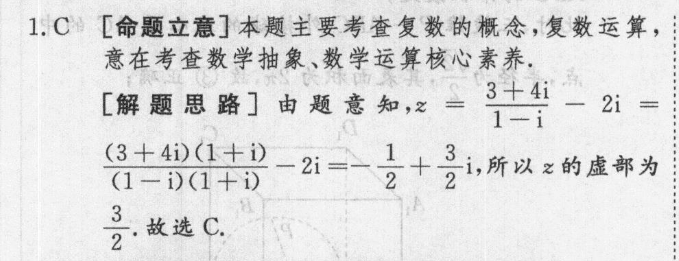 1. C 【命题立意】本题主要考查复数的概念,复数运算,
意在考查数学抽象、数学运算核心素养.
【解题思路】由题意知,z = \frac{3+4i}{1-i} - 2i =
\frac{(3+4i)(1+i)}{(1-i)(1+i)} - 2i = -\frac{1}{2} + \frac{3}{2}i,所以 z 的虚部为
\frac{3}{2}. 故选 C.